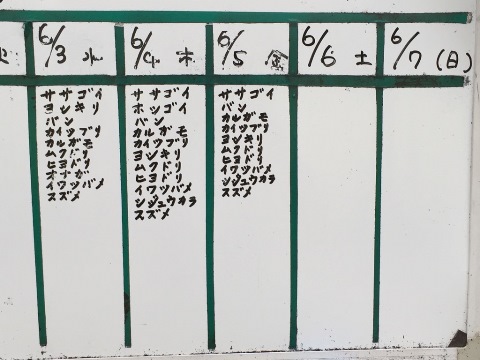 6/3 水
ササゴイ
ヨシキリ
バン
カイツブリ
カルガモ
ムクドリ
ヒヨドリ
オナガ
イワツバメ
スズメ
6/4 木
ササゴイ
ホシゴイ
バン
カルガモ
カイツブリ
ヨシキリ
ムクドリ
ヒヨドリ
イワツバメ
シジュウカラ
スズメ
6/5 金
ササゴイ
バン
カルガモ
カイツブリ
ヨシキリ
ムクドリ
ヒヨドリ
イワツバメ
シジュウカラ
スズメ
6/6 土
6/7 (日)